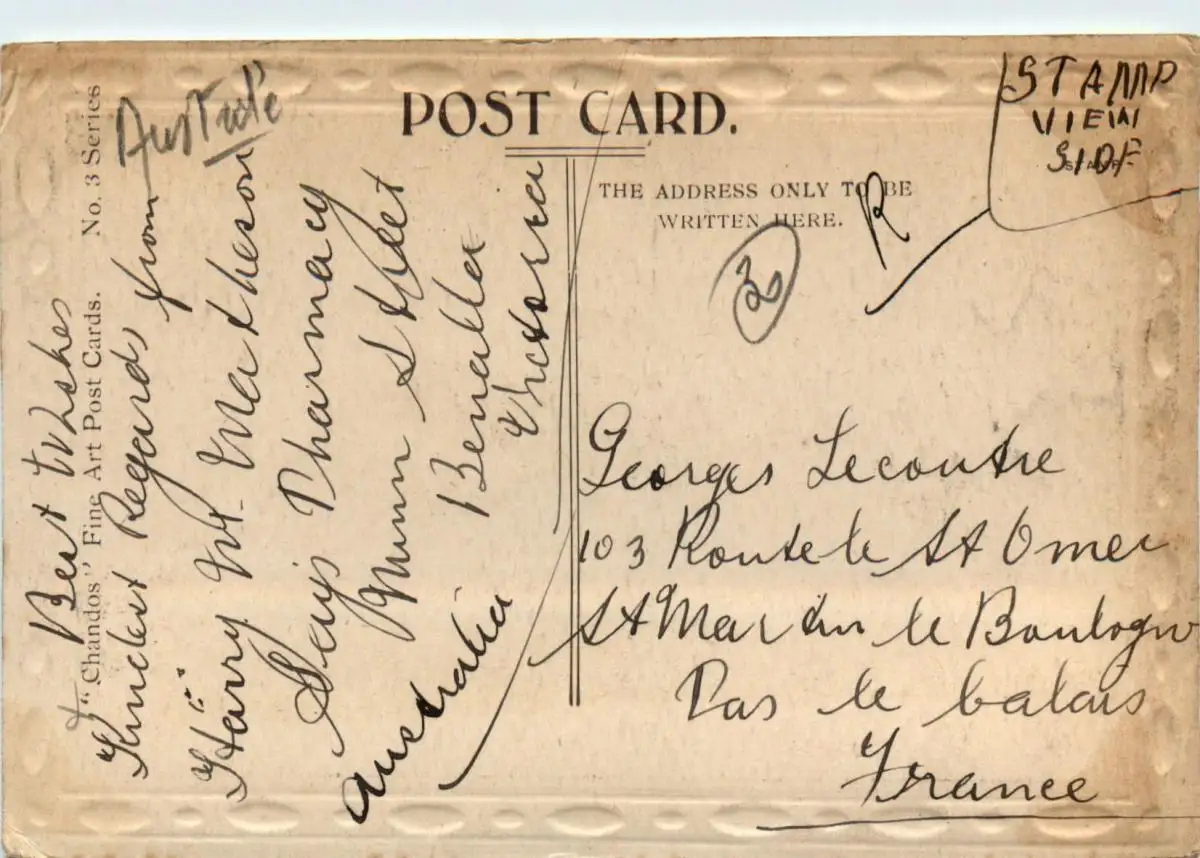 "Chandos" Fine Art Post Cards. No. 3 Series
POST CARD.
THE ADDRESS ONLY TO BE
WRITTEN HERE.
STAMP
VIEW
SIDE
R
2
Best Wishes
+ Kindest Regards from
Harry M. Matheson
Says Pharmacy
Nunn Street
Benalla
Victoria
Australia
Georges Lecoutre
103 Route le St Omer
St Martin le Boulogne
Pas le Calais
France